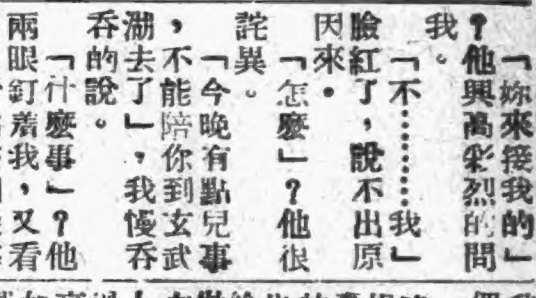 「妳來接我的」
?他興高彩烈的問
我。
「不………我」
臉紅了,說不出原
因來。
「怎麽」?他很
詫異。
「今晚有點兒事
,不能陪你到玄武
湖去了」,我慢吞
吞的說。
「什麽事」?他
兩眼釘着我,又看